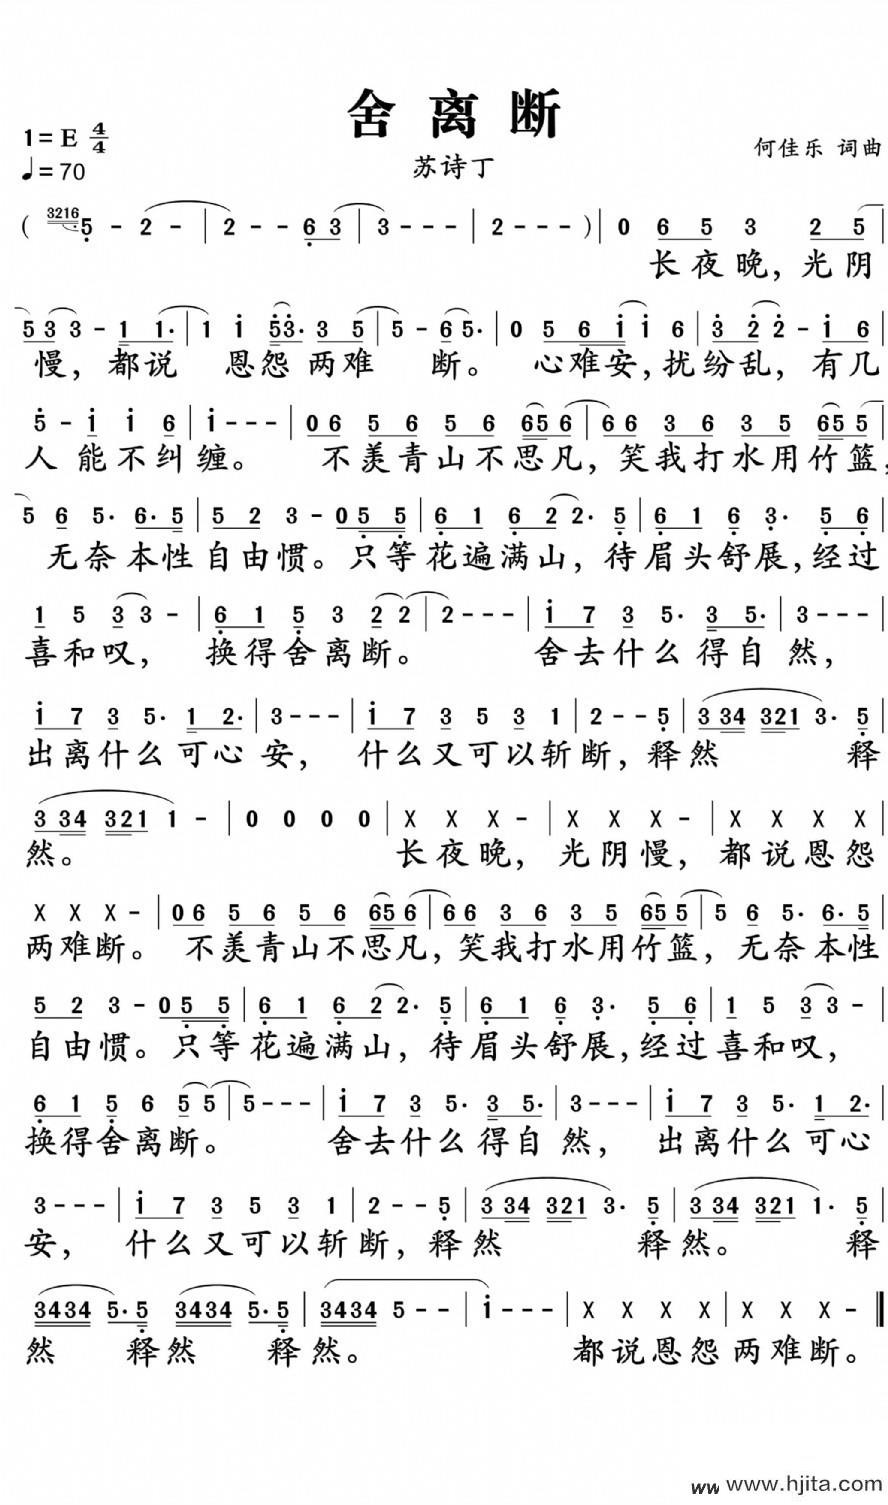 舍离断
1=E 4/4
苏诗丁
何佳乐 词曲
♩=70
( 3216 5 - 2 - | 2 - - 6 3 | 3 - - - | 2 - - - ) | 0 6 5 3 2 5 |
长夜晚，光阴
5 3 3 - 1 1· | 1 i 5 3· 3 5 | 5 - 6 5· | 0 5 6 i i 6 | 3 2 2 - i 6 |
慢，都说 恩怨 两难 断。 心难安，扰纷乱，有几
5 - i i 6 | i - - - | 0 6 5 6 5 6 65 6 | 6 6 3 6 3 5 65 5 |
人 能不纠缠。 不羡青山不思凡，笑我打水用竹篮，
5 6 5· 6· 5 | 5 2 3 - 0 5 5 | 6 1 6 2 2· 5 | 6 1 6 3· 5 6 |
无奈本性自由惯。只等花遍满山，待眉头舒展，经过
1 5 3 3 - | 6 1 5 3 2 2 | 2 - - - | i 7 3 5· 3 5· | 3 - - - |
喜和叹， 换得舍离断。 舍去什么得自然，
i 7 3 5· 1 2· | 3 - - - | i 7 3 5 3 1 | 2 - - 5 | 3 34 321 3· 5 |
出离什么可心安， 什么又可以斩断，释然 释
3 34 321 1 - | 0 0 0 0 | X X X - | X X X - | X X X X |
然。 长夜晚，光阴慢，都说恩怨
X X X - | 0 6 5 6 5 6 65 6 | 6 6 3 6 3 5 65 5 | 5 6 5· 6· 5 |
两难断。 不羡青山不思凡，笑我打水用竹篮，无奈本性
5 2 3 - 0 5 5 | 6 1 6 2 2· 5 | 6 1 6 3· 5 6 | 1 5 3 3 - |
自由惯。只等花遍满山，待眉头舒展，经过喜和叹，
6 1 5 6 5 5 | 5 - - - | i 7 3 5· 3 5· | 3 - - - | i 7 3 5· 1 2· |
换得舍离断。 舍去什么得自然， 出离什么可心
3 - - - | i 7 3 5 3 1 | 2 - - 5 | 3 34 321 3· 5 | 3 34 321 1· 5 |
安， 什么又可以斩断，释然 释然。 释
3434 5· 5 3434 5· 5 | 3434 5 - - | i - - - | X X X X | X X X - ‖
然 释然 释然。 都说恩怨两难断。
ww www.hjita.com